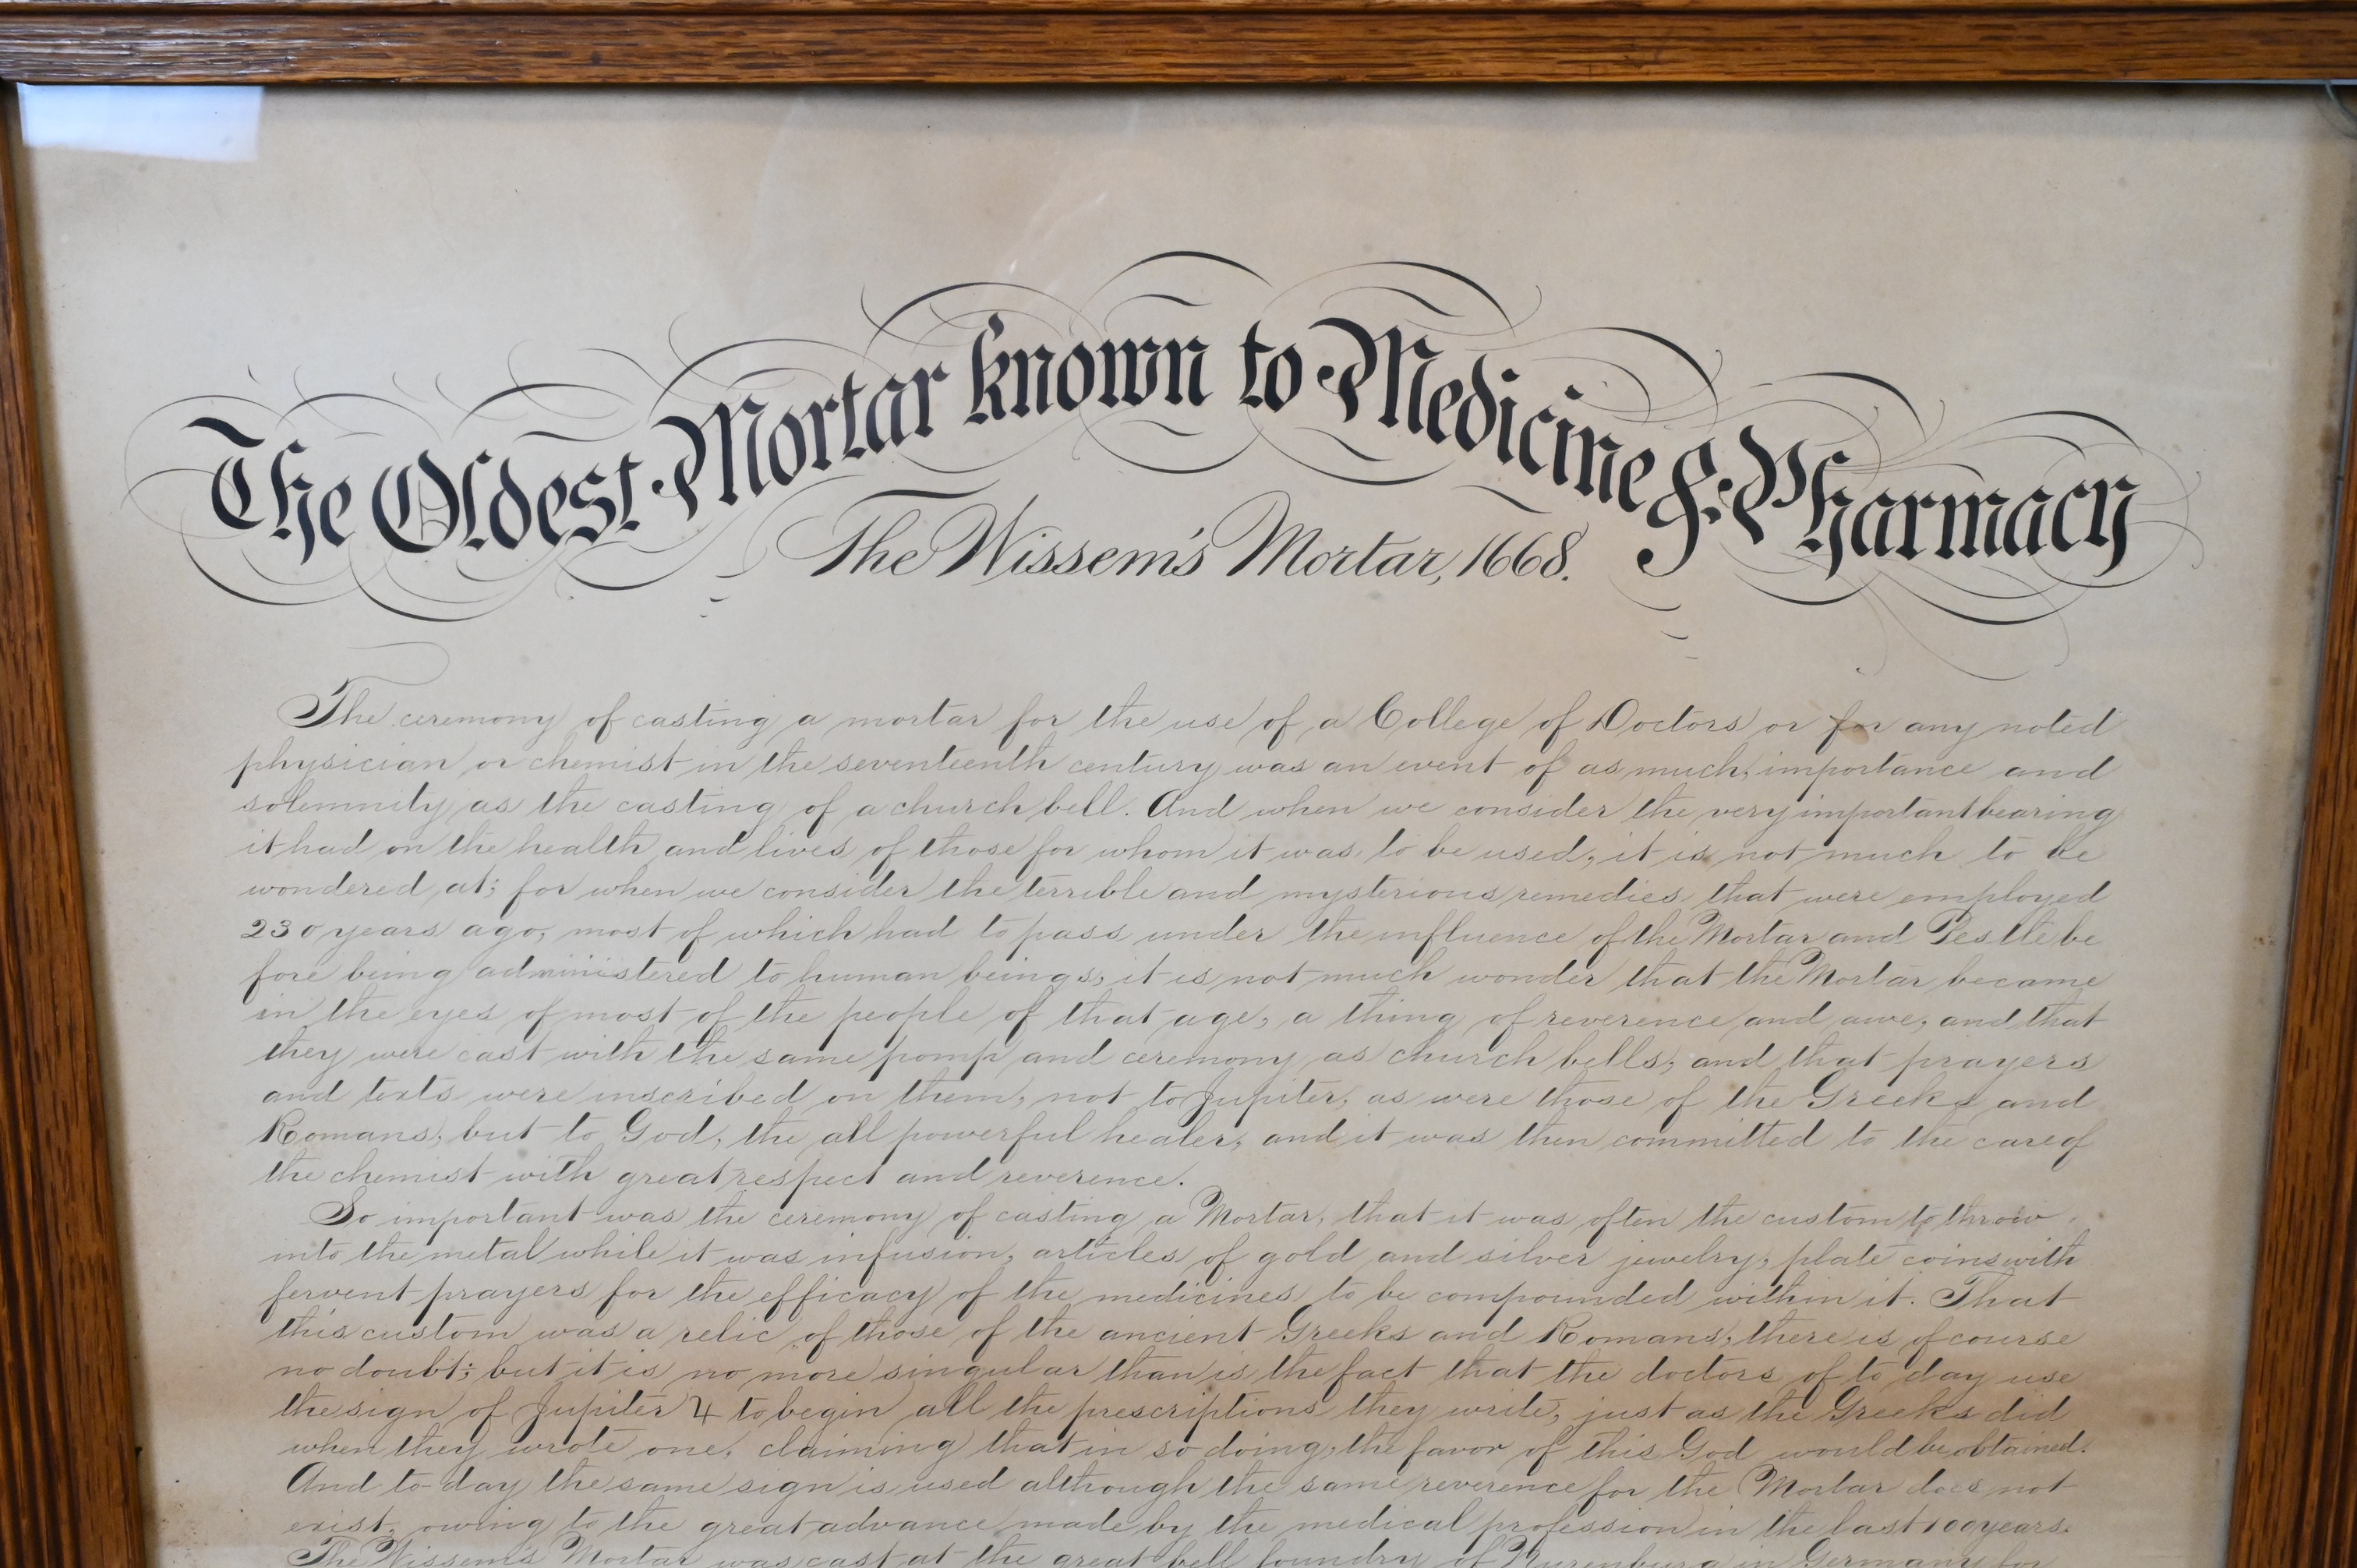 The Oldest Mortar known to Medicine & Pharmacy
The Wissem's Mortar, 1668.
The ceremony of casting a mortar for the use of a College of Doctors or for any noted
physician or chemist in the seventeenth century was an event of as much importance and
solemnity as the casting of a church bell. And when we consider the very important bearing
it had on the health and lives of those for whom it was to be used, it is not much to be
wondered at; for when we consider the terrible and mysterious remedies that were employed
230 years ago, most of which had to pass under the influence of the Mortar and Pestle be
fore being administered to human beings, it is not much wonder that the Mortar became
in the eyes of most of the people of that age, a thing of reverence and awe, and that
they were cast with the same pomp and ceremony as church bells, and that prayers
and texts were inscribed on them, not to Jupiter, as were those of the Greeks and
Romans, but to God, the all powerful healer, and it was then committed to the care of
the chemist with great respect and reverence.
So important was the ceremony of casting a Mortar, that it was often the custom to throw
into the metal while it was in fusion, articles of gold and silver jewelry, plate coins with
fervent prayers for the efficacy of the medicines to be compounded within it. That
this custom was a relic of those of the ancient Greeks and Romans, there is of course
no doubt; but it is no more singular than is the fact that the doctors of to day use
the sign of Jupiter ♃ to begin all the prescriptions they write, just as the Greeks did
when they wrote one, claiming that in so doing, the favor of this God would be obtained.
And to-day the same sign is used although the same reverence for the Mortar does not
exist, owing to the great advance made by the medical profession in the last 100 years.
The Wissem's Mortar was cast at the great bell foundry of Nurenburg in Germany for